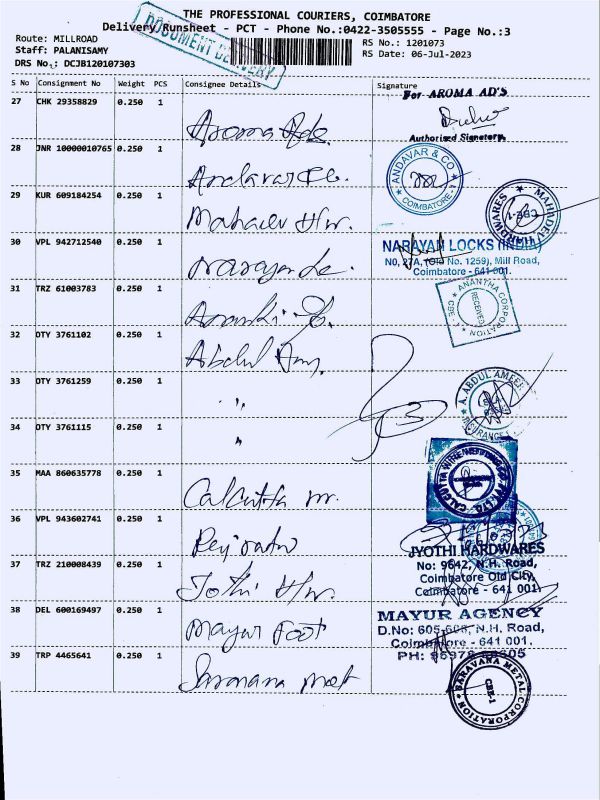 THE PROFESSIONAL COURIERS, COIMBATORE
Delivery Runsheet - PCT - Phone No.:0422-3505555 - Page No.:3
DOCUMENT DELIVERY
Route: MILLROAD
RS No.: 1201073
Staff: PALANISAMY
RS Date: 06-Jul-2023
DRS No.: DCJB120107303
S No Consignment No Weight PCS Consignee Details Signature
27 CHK 29358829 0.250 1
Aroma Ads
For AROMA AD'S
Authorised Signatory.
28 JNR 10000010765 0.250 1
Andavar Co.
ANDAVAR & CO
COIMBATORE-1
29 KUR 609184254 0.250 1
Mahadev H/w.
MAHADEV HARDWARES
CBE-1
30 VPL 942712540 0.250 1
NARAYAN LOCKS (INDIA)
N0, 27A, (Old No. 1259), Mill Road,
Coimbatore - 641 001.
31 TRZ 61003783 0.250 1
ANANTHA CORPORATION
RECEIVED
CBE - 1
32 OTY 3761102 0.250 1
Abdul Amy
33 OTY 3761259 0.250 1
"
A. ABDUL AMEER
34 OTY 3761115 0.250 1
"
35 MAA 860635778 0.250 1
Calcutta
CALCUTTA WIRE NETTING
36 VPL 943602741 0.250 1
JYOTHI HARDWARES
No: 9642, N.H. Road,
Coimbatore Old City,
Coimbatore - 641 001
37 TRZ 210008439 0.250 1
Jothi H/w.
38 DEL 600169497 0.250 1
Mayur Foot
MAYUR AGENCY
D.No: 605-606, N.H. Road,
Coimbatore - 641 001.
39 TRP 4465641 0.250 1
Saravana Met
SARAVANA METAL CORPORATION
CBE-1